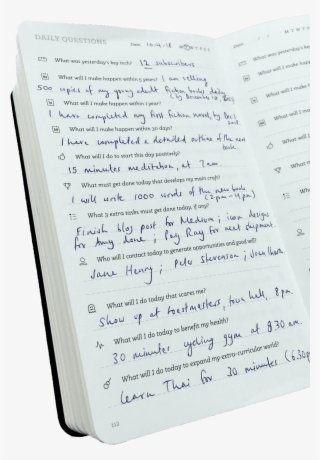 DAILY QUESTIONS
Date 10.4.18 M T W T F S S
What was yesterday's big tick? 12 subscribers
What will I make happen within 5 years? I am selling
500 copies of my young adult fiction books daily
(by December 1st,
What will I make happen within 1 year?
I have completed my first fiction novel, by Dec 1
What will I make happen within 30 days?
I have completed a detailed outline of the new
book.
What will I do to start this day positively?
15 minutes meditation, at 7am.
What must get done today that develops my main craft?
I will write 1000 words of the new book
(2pm - 4pm)
What 3 extra tasks must get done today, if any?
Finish blog post for Medium; icon designs
for Amy done; Pay Ray for next shipment.
Who will I contact today to generate opportunities and goodwill?
Jane Henry; Pete Stevenson; Joan
What will I do today that scares me?
Show up at toastmasters, town hall, 8pm
What will I do today to benefit my health?
30 minutes cycling gym at 8.30am.
What will I do today to expand my extra-curricular world?
Learn Thai for 30 minutes (6.30p
122
M T W T F